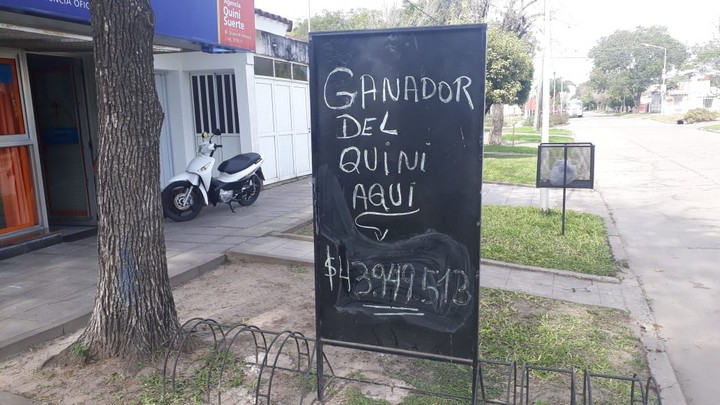 Agencia
Quini
Suerte
GANADOR
DEL
QUINI
AQUI
$43.949.513